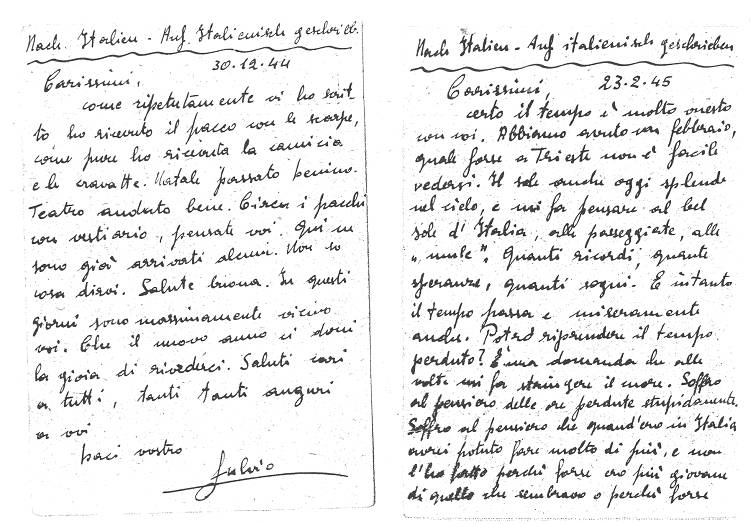 Nach Italien - Auf Italienisch geschrieb.
30.12.44
Carissimi,
come ripetutamente vi ho scrit-
to ho ricevuto il pacco con le scarpe,
come pure ho ricevuta la camicia
e le cravatte. Natale passato benino.
Teatro andato bene. Circa i pacchi
con vestiario, pensate voi. Qui ne
sono già arrivati alcuni. Non so
cosa dirvi. Salute buona. In questi
giorni sono massimamente vicino
voi. Che il nuovo anno ci doni
la gioia di rivederci. Saluti cari
a tutti, tanti tanti auguri
a voi
baci vostro
Fulvio
Nach Italien - Auf italienisch geschrieben
Carissimi, 23-2-45
certo il tempo è molto onesto
con voi. Abbiamo avuto un febbraio,
quale forse a Trieste non è facile
vedersi. Il sole anche oggi splende
nel cielo, e mi fa pensare al bel
sole d'Italia, alle passeggiate, alle
"mule". Quanti ricordi, quante
speranze, quanti sogni. E intanto
il tempo passa e miseramente
anche. Potrò riprendere il tempo
perduto? È una domanda che alle
volte mi fa stringere il cuore. Soffro
al pensiero delle ore perdute stupidamente.
Soffro al pensiero che quand'ero in Italia
avrei potuto fare molto di più, e non
l'ho fatto perchè forse ero più giovane
di quello che sembravo o perchè forse